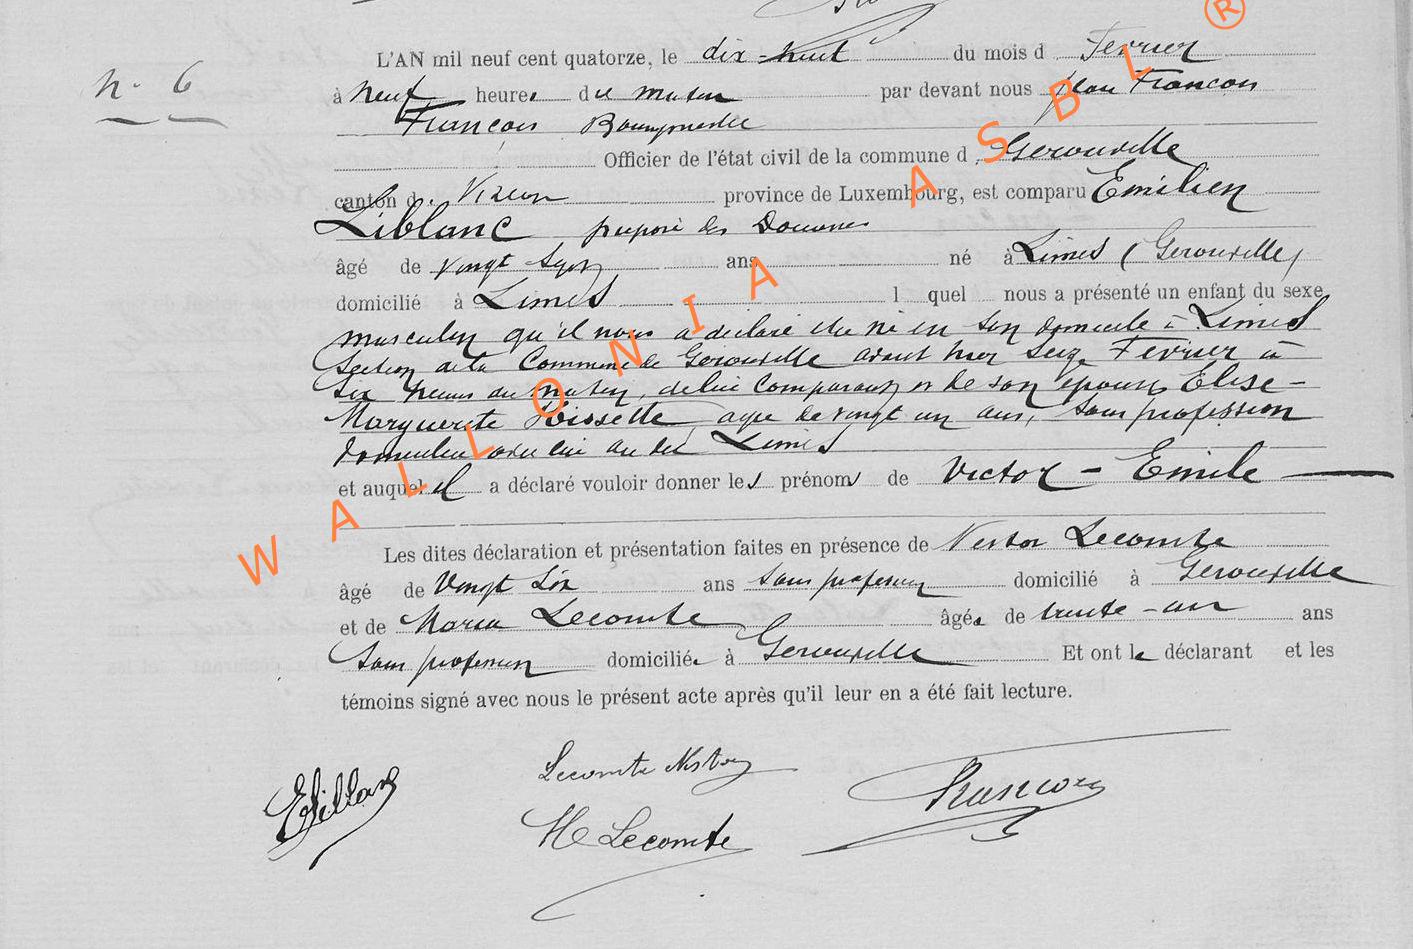 N. 6
L'AN mil neuf cent quatorze, le dix-huit du mois d Fevrier
à neuf heures du matin par devant nous Jean François
François Bourgmestre
Officier de l'état civil de la commune d Gerouville
canton d Virton province de Luxembourg, est comparu Emilien
Liblanc préposé des Douanes
âgé de vingt ans né à Limes (Gerouville)
domicilié à Limes l quel nous a présenté un enfant du sexe
masculin qu'il nous a déclaré être né en son domicile à Limes
Section de la Commune de Gerouville avant hier seize Fevrier à
six heures du matin, de lui comparant et de son épouse Elise-
Marguerite agée de vingt un ans, sans profession
domiciliée avec lui au dit Limes
et auquel il a déclaré vouloir donner les prénoms de Victor - Emile
Les dites déclaration et présentation faites en présence de Nestor Lecomte
âgé de vingt six ans sans profession domicilié à Gerouville
et de Maria Lecomte âgée de trente-un ans
sans profession domiciliée à Gerouville Et ont le déclarant et les
témoins signé avec nous le présent acte après qu'il leur en a été fait lecture.
Lecomte Nestor
M Lecomte
François
WALLONIA ASBL ®